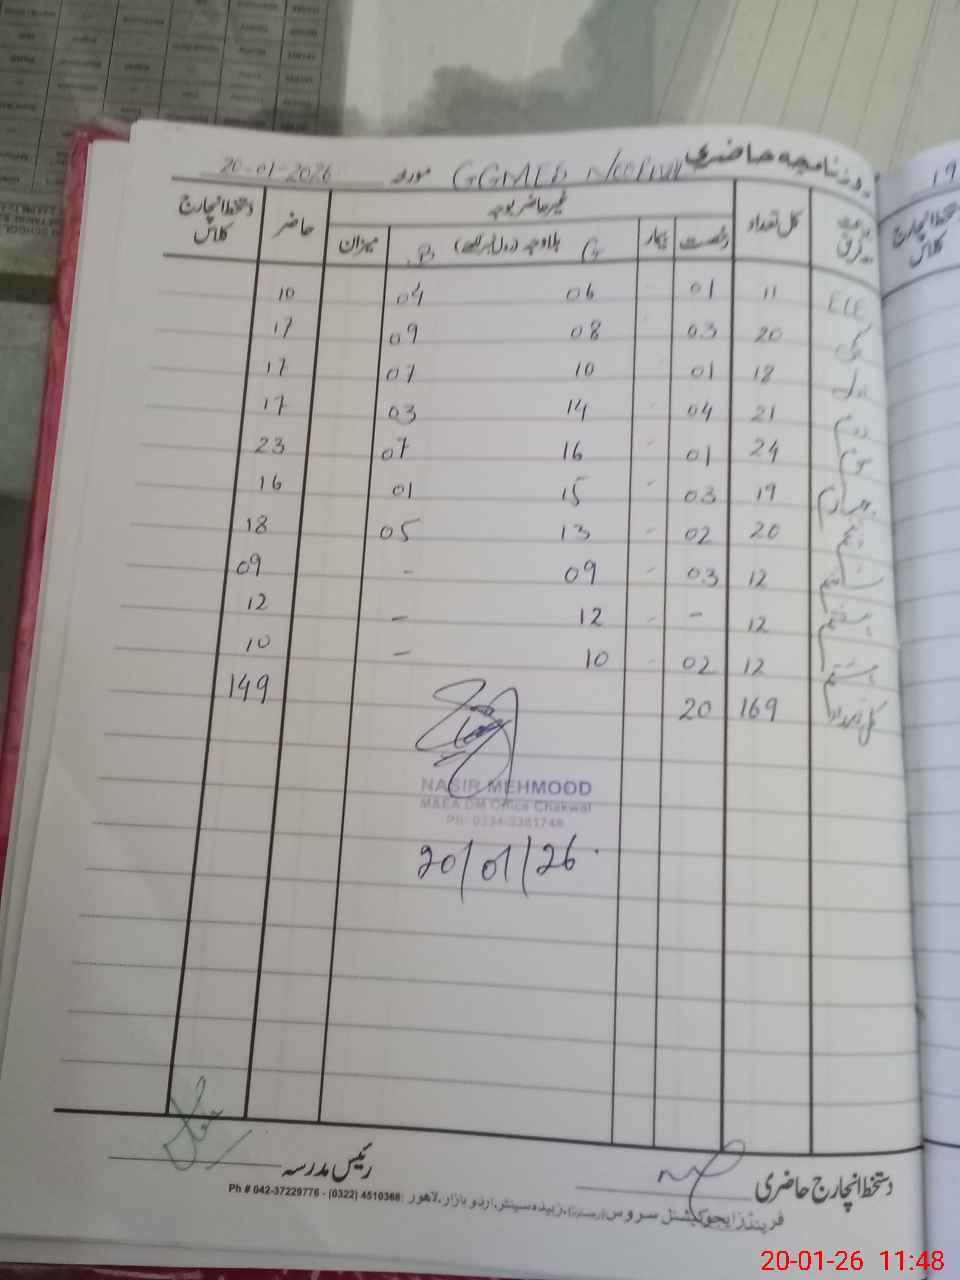 روزنامچہ حاضری GGMES مورخہ 20-01-2026
کل تعداد رخصت بیمار غیر حاضر بوجہ حاضر دستخط انچارج کلاس
G بلاوجہ (رول نمبر لکھئے) B میزان
ECE 11 01 - 06 04 10
کچی 20 03 - 08 09 17
اول 18 01 10 07 17
دوم 21 04 - 14 03 17
سوم 24 01 - 16 07 23
چہارم 19 03 - 15 01 16
پنجم 20 02 - 13 05 18
ششم 12 03 - 09 - 09
ہفتم 12 - - 12 - 12
ہشتم 12 02 - 10 - 10
کل تعداد 169 20 149
NASIR MEHMOOD
M&EA DM Office Chakwal
20/01/26
دستخط انچارج حاضری رئیس مدرسہ
فرینڈز ایجوکیشنل سروس زبیدہ سینٹر، اردو بازار، لاہور Ph # 042-37229776 - (0322) 4510368
19
دستخط انچارج کلاس
20-01-26 11:48